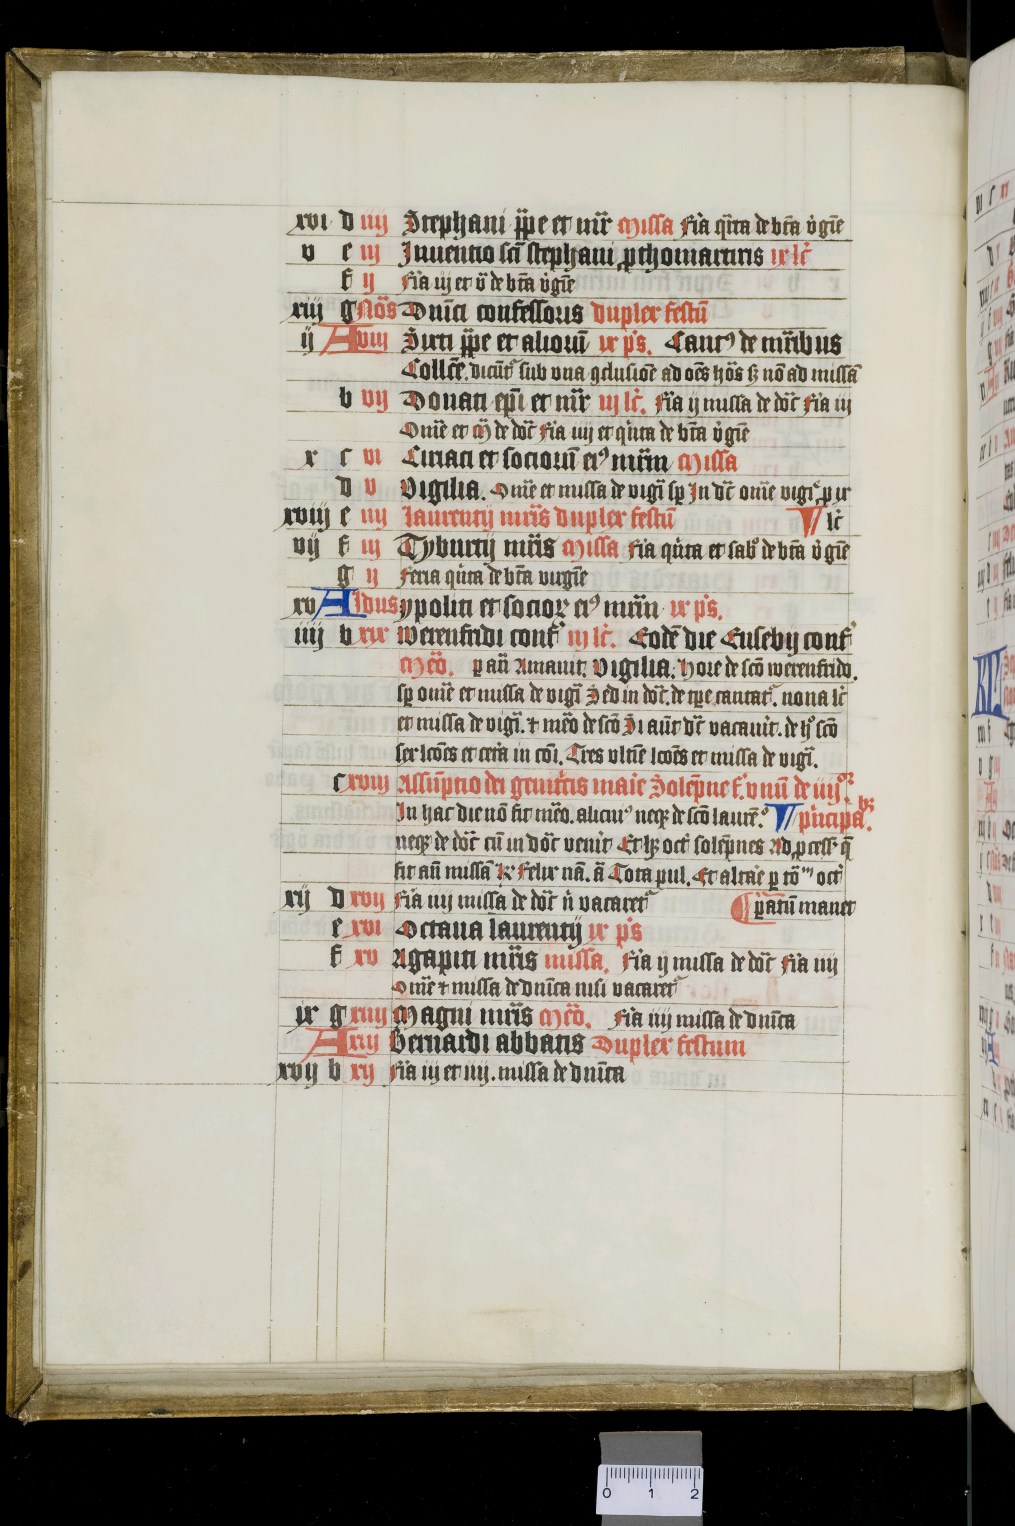 xvi d iiij Stephani pp̄e et mr̄ Missa fīa qīta de btā v̇gīe
v e iij Inuentio scī stephani ꝓthomartiris ix lc̄
f ij fīa iij et v̄ de btā v̇gīe
xiij g Nōs Dn̄ici confessoris Duplex festū
ij A viij Sixti pp̄e et alioꝝ ix p̄s. Cant⁹ de mr̄ibus
Collc̄e. dicūt᷑ sub vna ꝯclusiōe ad oēs hōs sꝫ nō ad missā
b vij Donati ep̄i et mr̄ iij lc̄. fīa ij missa de dōc̄ fīa iij
Om̄e et m̄ de dōc̄ fīa iiij et qīta de btā v̇gīe
x c vi Ciriaci et socioꝝ ei⁹ mr̄m Missa
d v Vigilia. Om̄e et missa de vigī sꝫ In dc̄ om̄e vigī ꝑ ix
xviij e iiij laurentij mr̄is duplex festū lc̄
vij f iij Tyburtij mr̄is Missa fīa qīta et sab̄ de btā v̇gīe
g ij feria qīta de btā virgīe
xv A Idus ypoliti et socioꝝ ei⁹ mr̄m ix p̄s.
iiij b xix Werenfridi conf̄ iij lc̄. Eodē die Eusebij conf̄
Mēō. ꝑ añ Amauit. Vigilia. hore de scō werenfrido.
sꝫ om̄e et missa de vigī Sed in dōc̄. de tp̄e cantat᷑. nona lc̄
et missa de vigī. & mēō de scō Si aūt dc̄ vacauit. de hͦ scō
sex lc̄oēs et cetā in cōi. Tres vltīe lc̄oēs et missa de vigī.
c xviij Assūptio dei genit̄cis maīe Solēpne f̄. vnū de iiijᵒʳ
In hac die nō fit mēō. alicui⁹ neqꝫ de scō laurē.⁹ p̄ncipa.bꝫ
neqꝫ de dōc̄ cū in dōc̄ venit Et hꝫ oct̄ solēpnes Ad ꝓcess̄ q̄
fit añ missā ℟ Felix nā. ā Tota pul. Et altāe ꝑ tō oct̄
xij d xvij fīa iiij missa de dōc̄ n̄ vacaret᷑ ꝑatū manet
e xvi Octaua laurentij ix p̄s
f xv Agapiti mr̄is missa. fīa ij missa de dōc̄ fīa iiij
Om̄e & missa de dn̄ica nisi vacaret᷑
ix g xiiij Magni mr̄is Mēō. fīa iiij missa de dn̄ica
A xiij Bernardi abbatis Duplex festum
xvij b xij fīa iij et iiij. missa de dn̄ica